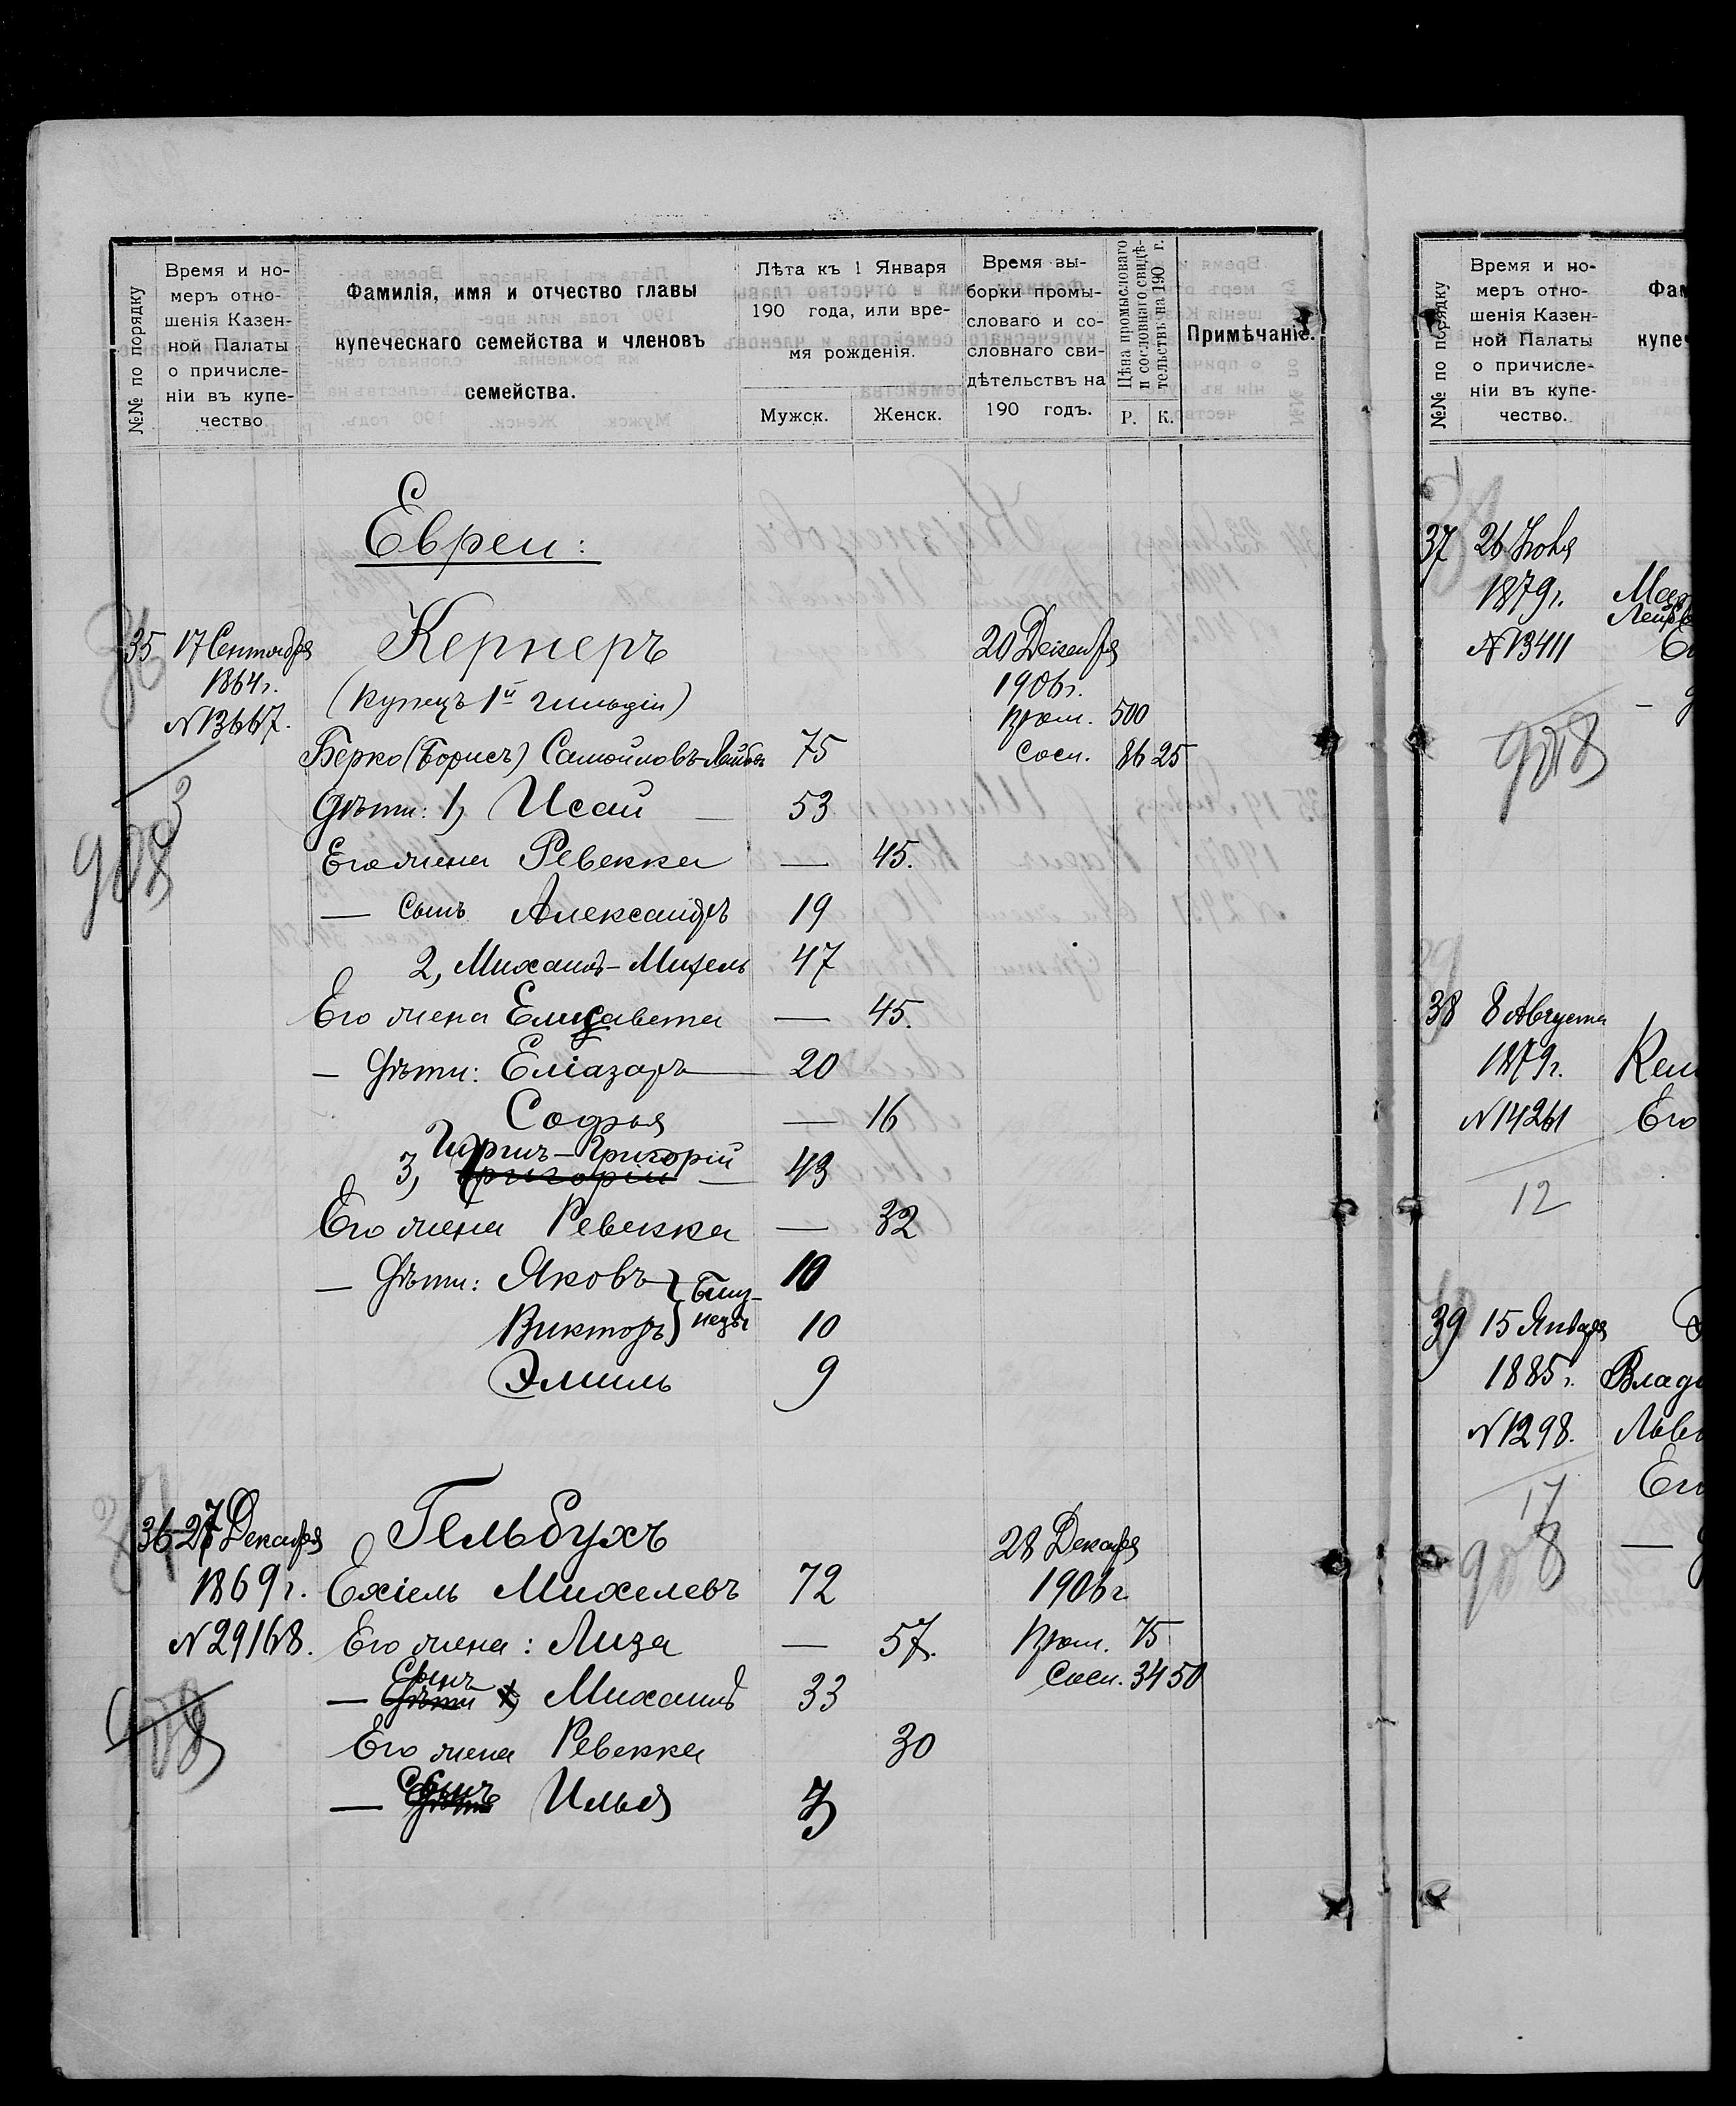 №№ по порядку
Время и но-
меръ отно-
шенія Казен-
ной Палаты
о причисле-
ніи въ купе-
чество
Фамилія, имя и отчество главы
купеческаго семейства и членовъ
семейства.
Лѣта къ 1 Января
190 года, или вре-
мя рожденія.
Мужск.
Женск.
Время вы-
борки промы-
словаго и со-
словнаго сви-
дѣтельствъ на
190 годъ.
Цѣна промысловаго
и сословнаго свидѣ-
тельствъ на 190 г.
Р.
К.
Примѣчаніе.
Евреи:
35 17 Сентября
1864 г.
N 13667.
908
Кернеръ
(Купецъ 1й гильдіи)
20 Декабря
1906 г.
Пром. 500
Сосл. 86 25
Берко (Борисъ) Самойловъ-Лейбов 75
Дѣти: 1) Исай — 53
Его жена Ревекка — 45.
— сынъ Александръ 19
2, Михаилъ-Михель 47
Его жена Елисавета — 45.
— Дѣти: Еліазаръ — 20
Софья — 16
Гиршъ-Григорій
3, Григорій — 43
Его жена Ревекка — 32
— Дѣти: Яковъ } Близ- 10
Викторъ } нецы 10
Эмиль 9
36 27 Декабря
1869 г.
N 29168.
908
Гельбухъ
28 Декабря
1906 г.
Пром. 75
Сосл. 34 50
Ехіель Михелевъ 72
Его жена: Лиза — 57.
Сынъ
— Дѣти 1) Михаилъ 33
Его жена Ревекка 30
— Сынъ Илья 3
№№ по порядку
Время и но-
меръ отно-
шенія Казен-
ной Палаты
о причисле-
ніи въ купе-
чество.
Фам
купеч
37 26 Іюня
1879 г.
N 13411
908
38 8 Августа
1879 г.
N 14261
12
Его
39 15 Января
1885 г.
N 1298.
17
908
Влади
Льво
Его